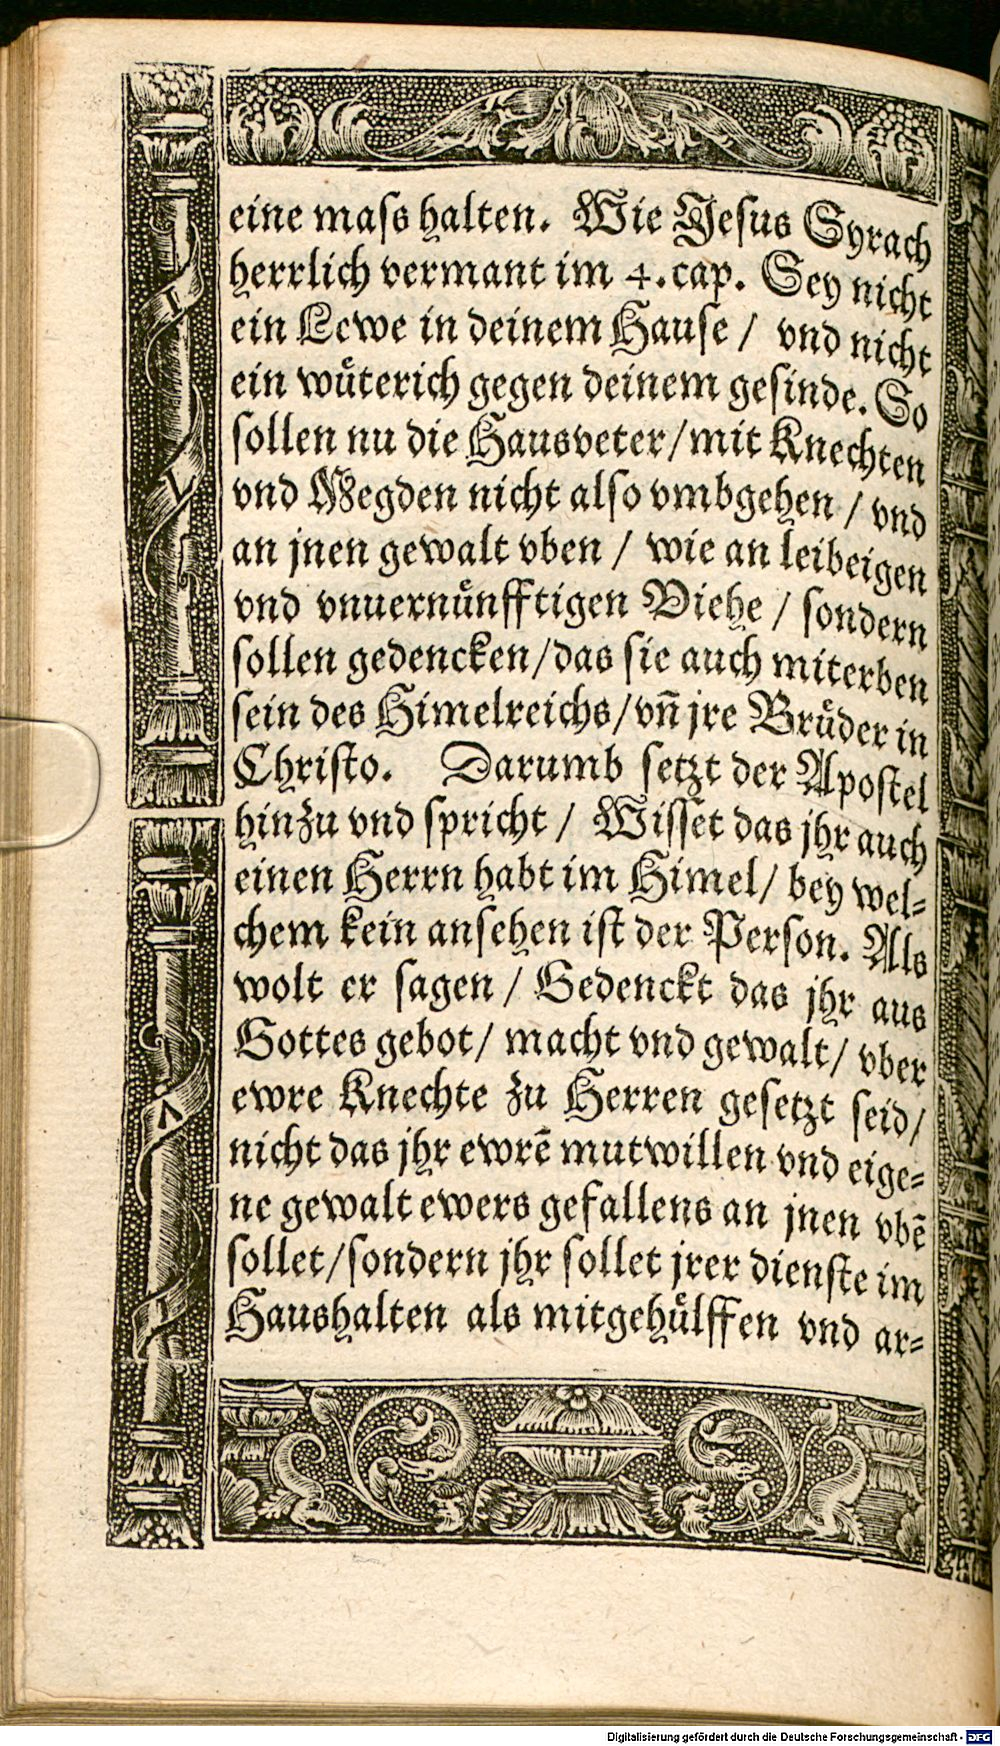 eine mass halten. Wie Jesus Syrach
herrlich vermant im 4. cap. Sey nicht
ein Lewe in deinem Hause / vnd nicht
ein wuͤterich gegen deinem gesinde. So
sollen nu die Hausveter/mit Knechten
vnd Megden nicht also vmbgehen / vnd
an jnen gewalt vben / wie an leibeigen
vnd vnuernuͤnfftigen Viehe / sondern
sollen gedencken/das sie auch miterben
sein des Himelreichs/vñ jre Bruͤder in
Christo. Darumb setzt der Apostel
hinzu vnd spricht / Wisset das jhr auch
einen Herrn habt im Himel/ bey wel=
chem kein ansehen ist der Person. Als
wolt er sagen / Gedenckt das jhr aus
Gottes gebot/ macht vnd gewalt/ vber
ewre Knechte zu Herren gesetzt seid/
nicht das jhr ewrē mutwillen vnd eige=
ne gewalt ewers gefallens an jnen vbē
sollet/sondern jhr sollet jrer dienste im
Haushalten als mitgehuͤlffen vnd ar=
Digitalisierung gefördert durch die Deutsche Forschungsgemeinschaft - DFG